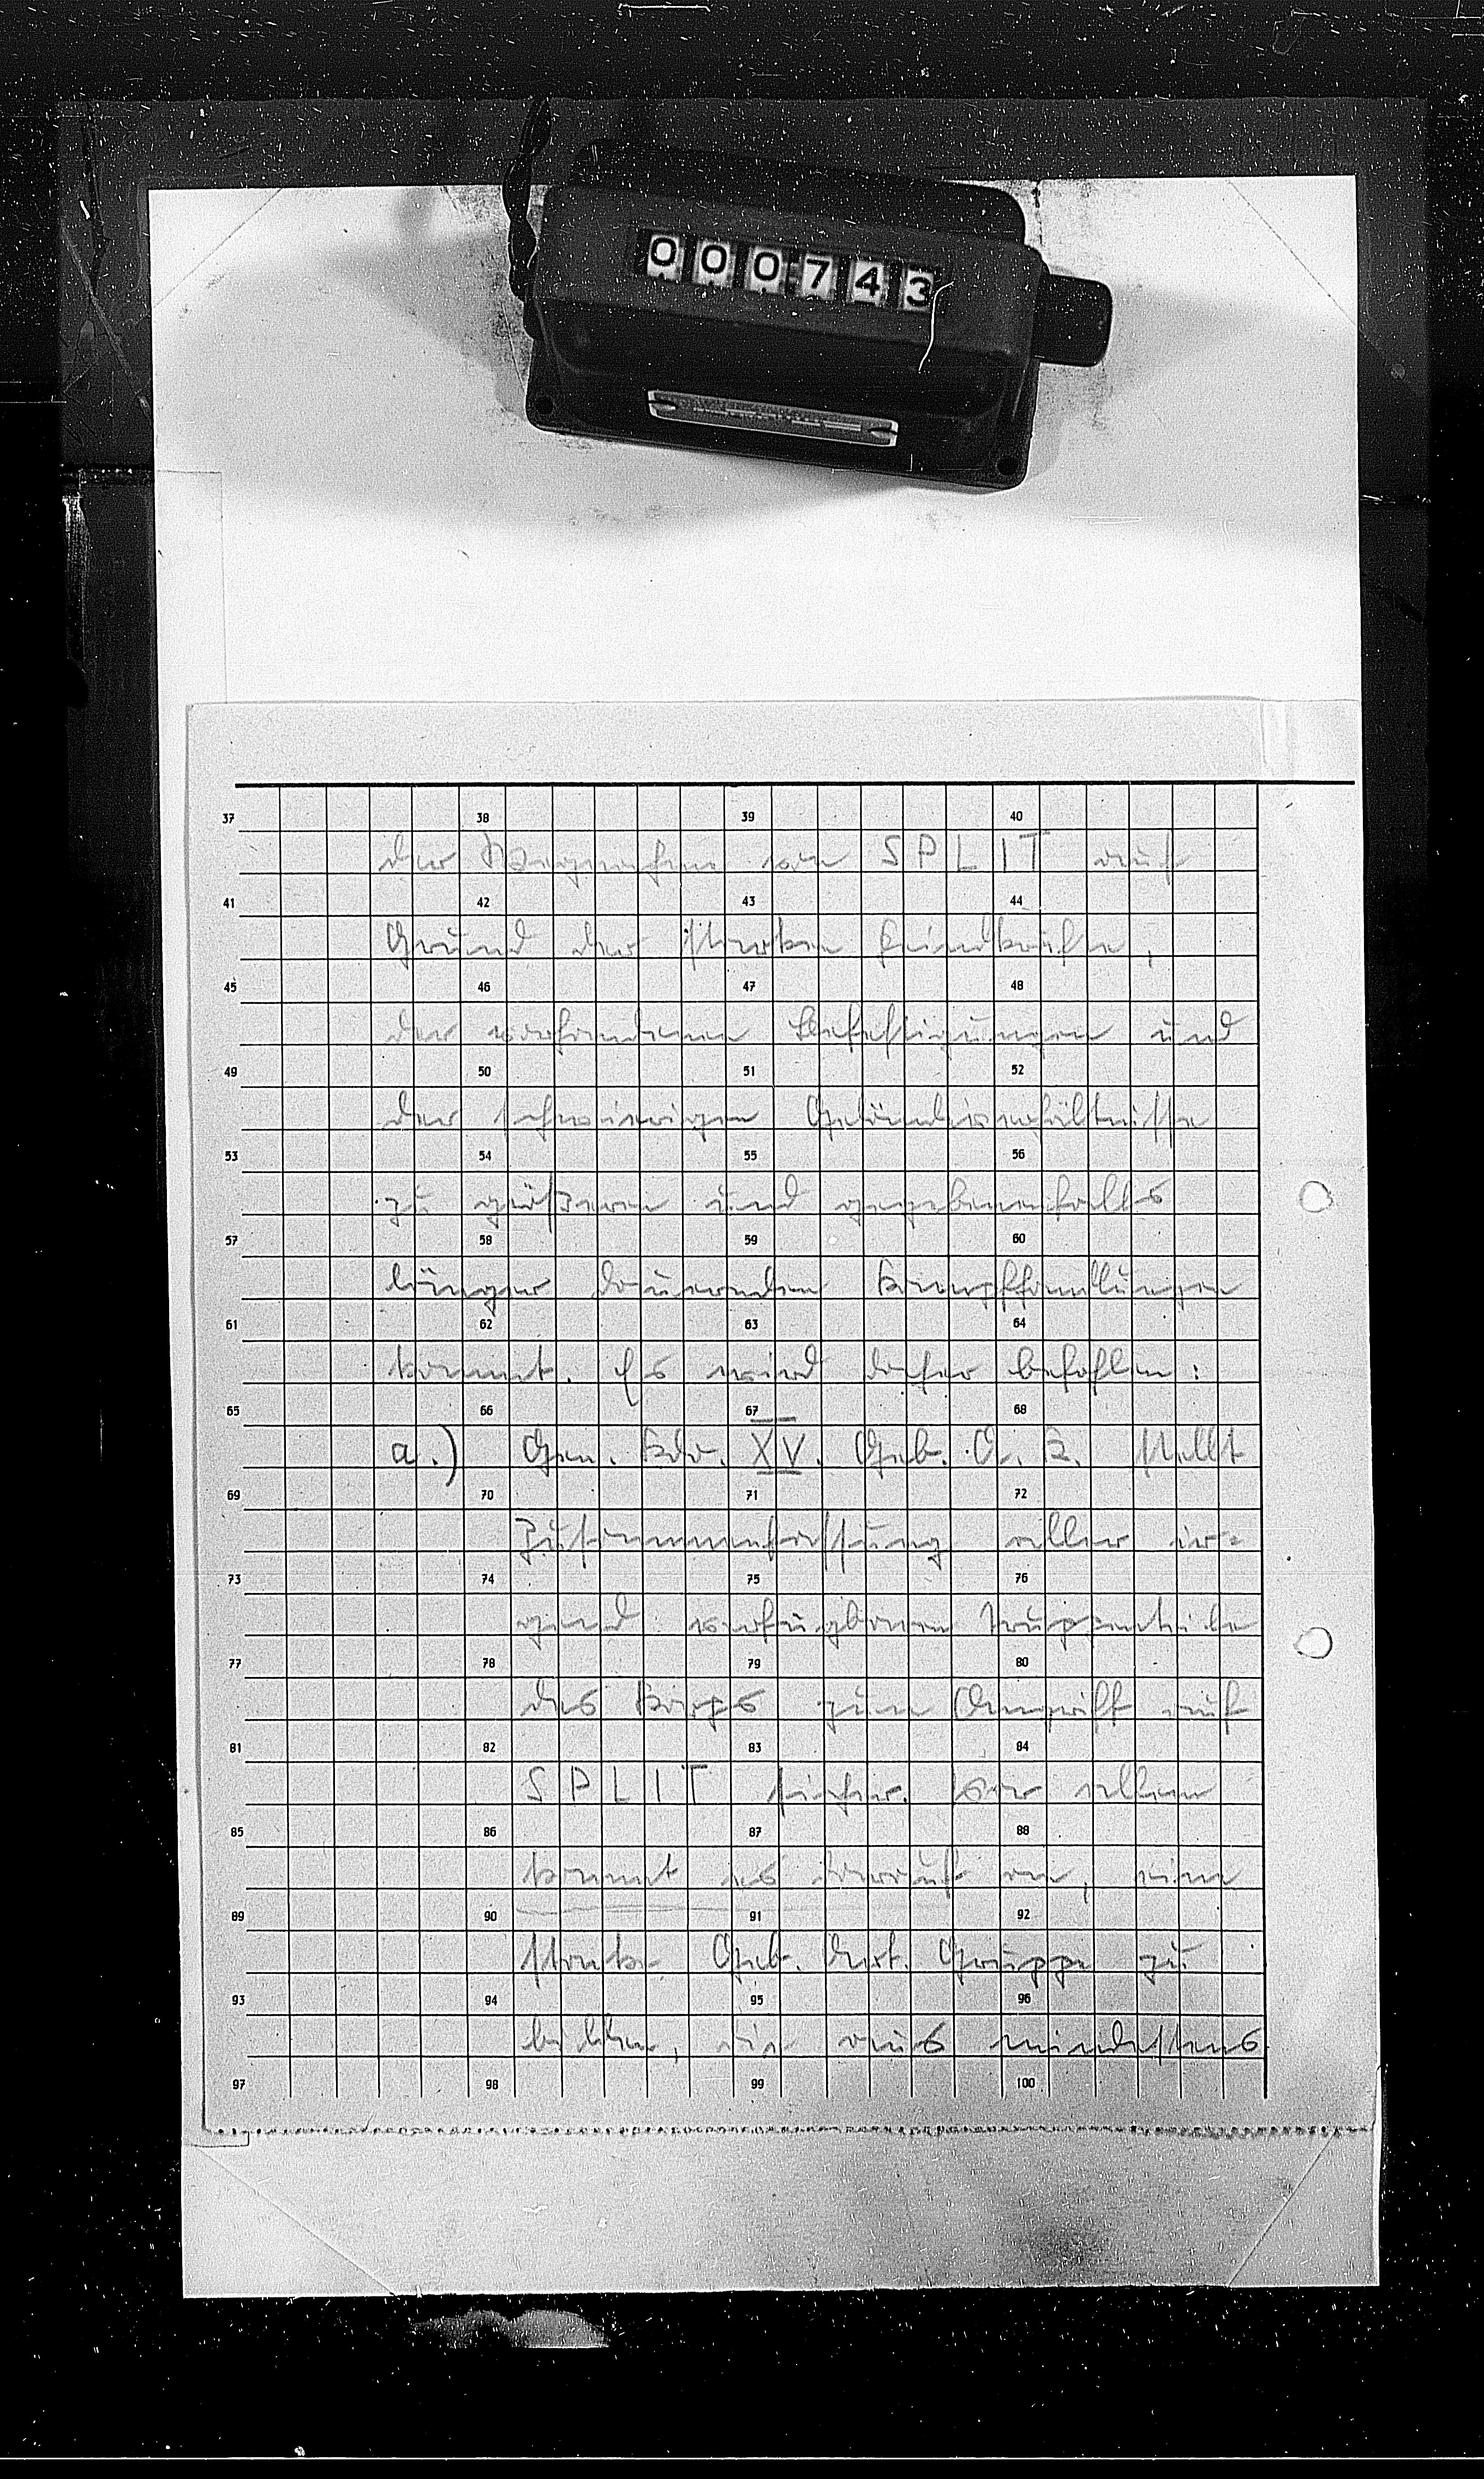 000743
37 38 39 40
der Wegnahme von SPLIT auf
41 42 43 44
Grund der starken Feindkräfte,
45 46 47 48
der vorhandenen Befestigungen und
49 50 51 52
der schwierigen Geländeverhältnisse
53 54 55 56
zu größeren und gegebenenfalls
57 58 59 60
länger dauernden Kampfhandlungen
61 62 63 64
kommt. Es wird daher befohlen:
65 66 67 68
a.) Gen. Kdo. XV. Geb. A. K. stellt
69 70 71 72
Zusammenfassung aller ir=
73 74 75 76
gend verfügbaren Truppenteile
77 78 79 80
des Korps zum Angriff auf
81 82 83 84
SPLIT sicher. Vor allem
85 86 87 88
kommt es darauf an, eine
89 90 91 92
starke Geb. Art. Gruppe zu
93 94 95 96
bilden, die aus mindestens
97 98 99 100